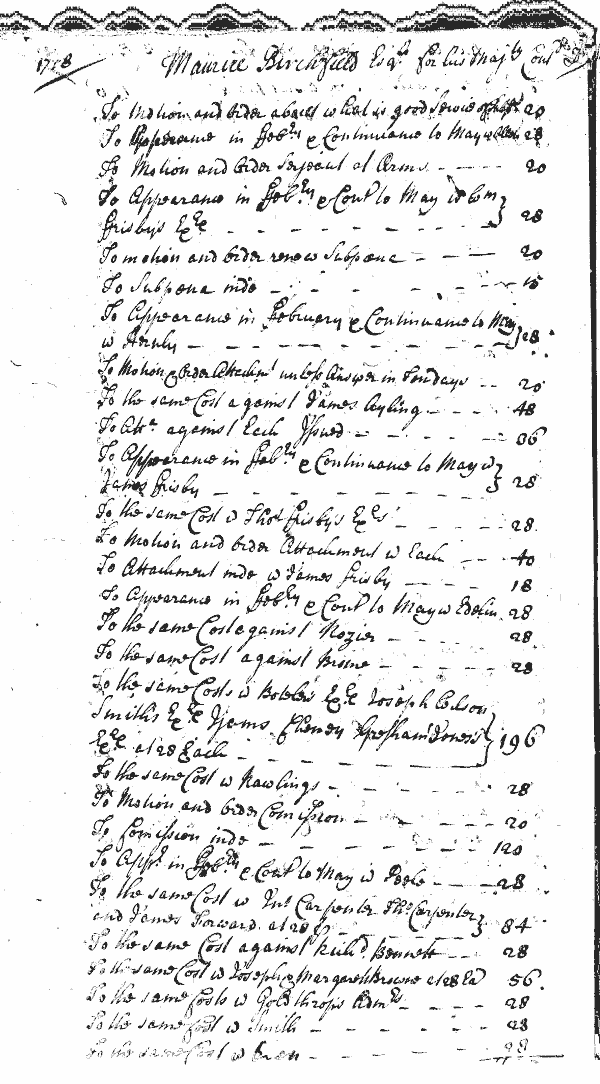 1718 Maurice Birchfield Esqr for his Majts
To Motion and Order about what is good Service 20
To Appearance in Febry & Continuance to May 28
To Motion and Order Serjeant at Arms - - - - 20
To Appearance in Febry & Cont to May w
Frisbys Exrs - - - - - - - 28
To motion and Order renew Subpœna - - - 20
To Subpœna inde - - - - - - 15
To Appearance in February & Continuance to May
w - - - - - - - 28
To Motion & Order Attachmt unless Answer in Ten days - - 20
To the same Cost against James Ayling - - - 48
To Atta against Each Issued - - - - 36
To Appearance in Febry & Continuance to May w
James Frisby - - - - - - - 28
To the same Cost w Thos Frisby's Exrs 28
To Motion and Order Attachment w Each - - 40
To Attachment inde w James Frisby - - - 18
To Appearance in Febry & Cont to May w Edelin 28
To the same Cost against Rozier - - - - 28
To the same Cost against Brune - - - - 28
To the same Costs w Exrs Joseph
Smith's Exrs Cheney Gresham
Exrs at 28 Each - - - - 196
To the same Cost w Rawlings - - - - 28
To Motion and Order Comission - - - 20
To Comission inde - - - - - - 120
To Appr in Febry & Cont to May w Peele - - 28
To the same Cost w Jno Carpenter Tho Carpenter
and James Forward at 28 84
To the same Cost against Richd Bennett - - 28
To the same Cost w Joseph & Margarett Browne at 28 Ea 56
To the same Costs w Goldthrops Admrs - - - 28
To the same Cost w Smith - - - - - 28
To the same Cost w - - - - 28